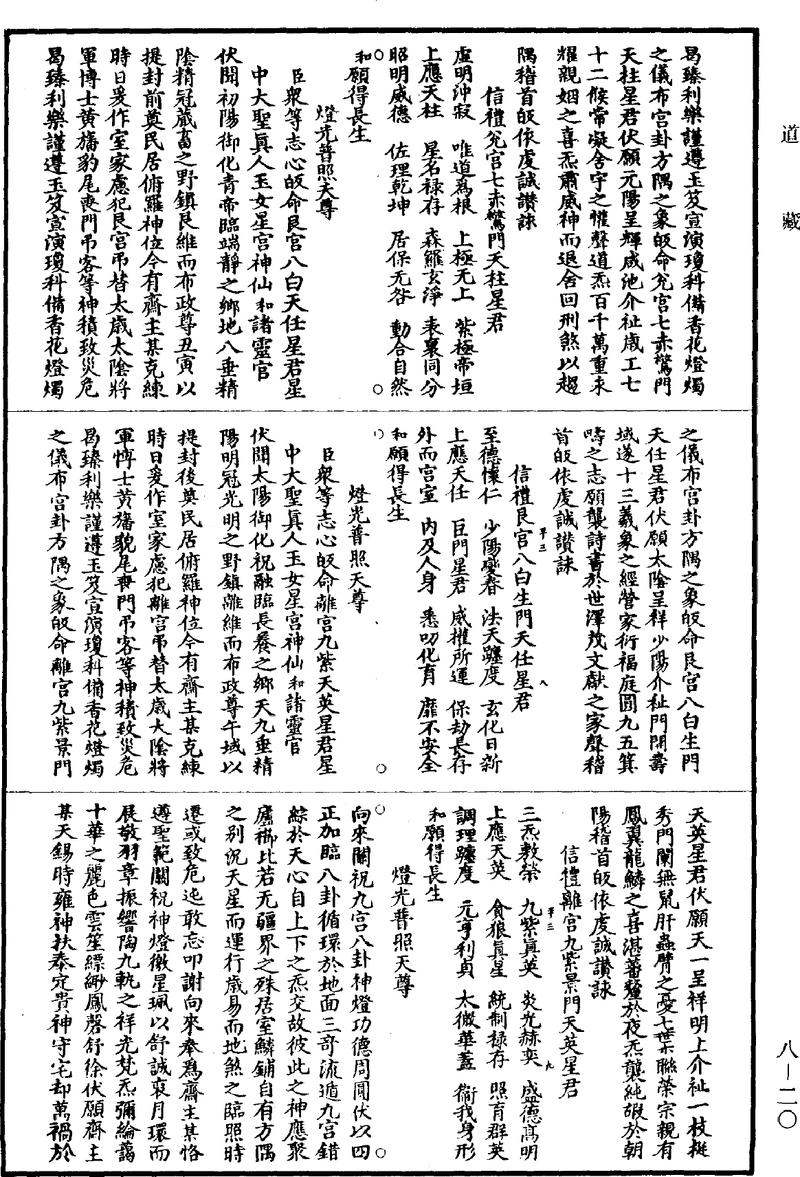 道藏
曷臻利樂謹遵玉笈宣演瓊科備香花燈燭
之儀布宫卦方隅之象皈命兊宫七赤驚門
天柱星君伏願元陽呈輝咸池介祉歲工七
十二候常凝舍宇之懽聲道炁百千萬重來
耀親姻之喜炁肅威神而退舍回刑煞以超
隅稽首皈依虔誠讚詠
信禮兊宫七赤驚門天柱星君
虛明沖寂　唯道爲根　上極无上　紫極帝垣
上應天柱　星名禄存　森羅玄淨　表裏同分
昭明威德　佐理乾坤　居保无咎　動合自然
和願得長生
燈光普照天尊
臣衆等志心皈命艮宫八白天任星君星
中大聖眞人玉女星宫神仙和諸靈官
伏聞初陽御化青帝臨端靜之鄉地八垂精
陰精冠蔵畜之野鎮艮維而布政尊丑寅以
提封前奠民居俯羅神位今有齋主某克練
時日爰作室家慮犯艮宫吊替太歲太陰將
軍博士黄旛豹尾喪門吊客等神積致災危
曷臻利樂謹遵玉笈宣演瓊科備香花燈燭
之儀布宫卦方隅之象皈命艮宫八白生門
天任星君伏願太陰呈祥少陽介祉門閈壽
域遂十三義象之經營家衍福庭圓九五箕
疇之志願襲詩書於世澤茂文獻之家聲稽
首皈依虔誠讚詠
信禮艮宫八白生門天任星君
至德懷仁　少陽變春　法天躔度　玄化日新
上應天任　巨門星君　威權所運　保劫長存
外而宫室　内及人身　悉叨化育　靡不安全
和願得長生
燈光普照天尊
臣衆等志心皈命離宫九紫天英星君星
中大聖眞人玉女星宫神仙和諸靈官
伏聞太陽御化祝融臨長養之鄉天九垂精
陽明冠光明之野鎮離維而布政尊午域以
提封後奠民居俯羅神位今有齋主某克練
時日爰作室家慮犯離宫吊替太歲大陰將
軍博士黄旛豹尾喪門吊客等神積致災危
曷臻利樂謹遵玉笈宣演瓊科備香花燈燭
之儀布宫卦方隅之象皈命離宫九紫景門
天英星君伏願天一呈祥明上介祉一枝挺
秀門闌無鼠肝蟲臂之憂七葉聯榮宗親有
鳳翼龍鱗之喜湛蕃釐於夜炁襲純嘏於朝
陽稽首皈依虔誠讚詠
信禮離宫九紫景門天英星君
三炁敷榮　九紫眞英　炎光赫奕　盛德髙明
上應天英　貪狼眞星　統制禄存　照育群英
調理躔度　元亨利貞　太微華蓋　衞我身形
和願得長生
燈光普照天尊
向來關祝九宫八卦神燈功德周圓伏以四
正加臨八卦循環於地面三奇流遁九宫錯
綜於天心自上下之炁交故彼此之神應聚
廬櫛比若无疆界之殊居室鱗鋪自有方隅
之别况天星而運行歲易而地煞之臨照時
遷或致危迍敢忘叩謝向來奉爲齋主某恪
遵聖範關祝神燈徹星珮以舒誠裒月環而
展敬羽章振響陶九軌之祥光梵炁彌綸藹
十華之麗色雲笙縹緲鳳磬舒徐伏願齋主
某天錫時雍神扶泰定貴神守宅却萬禍於
八－二〇